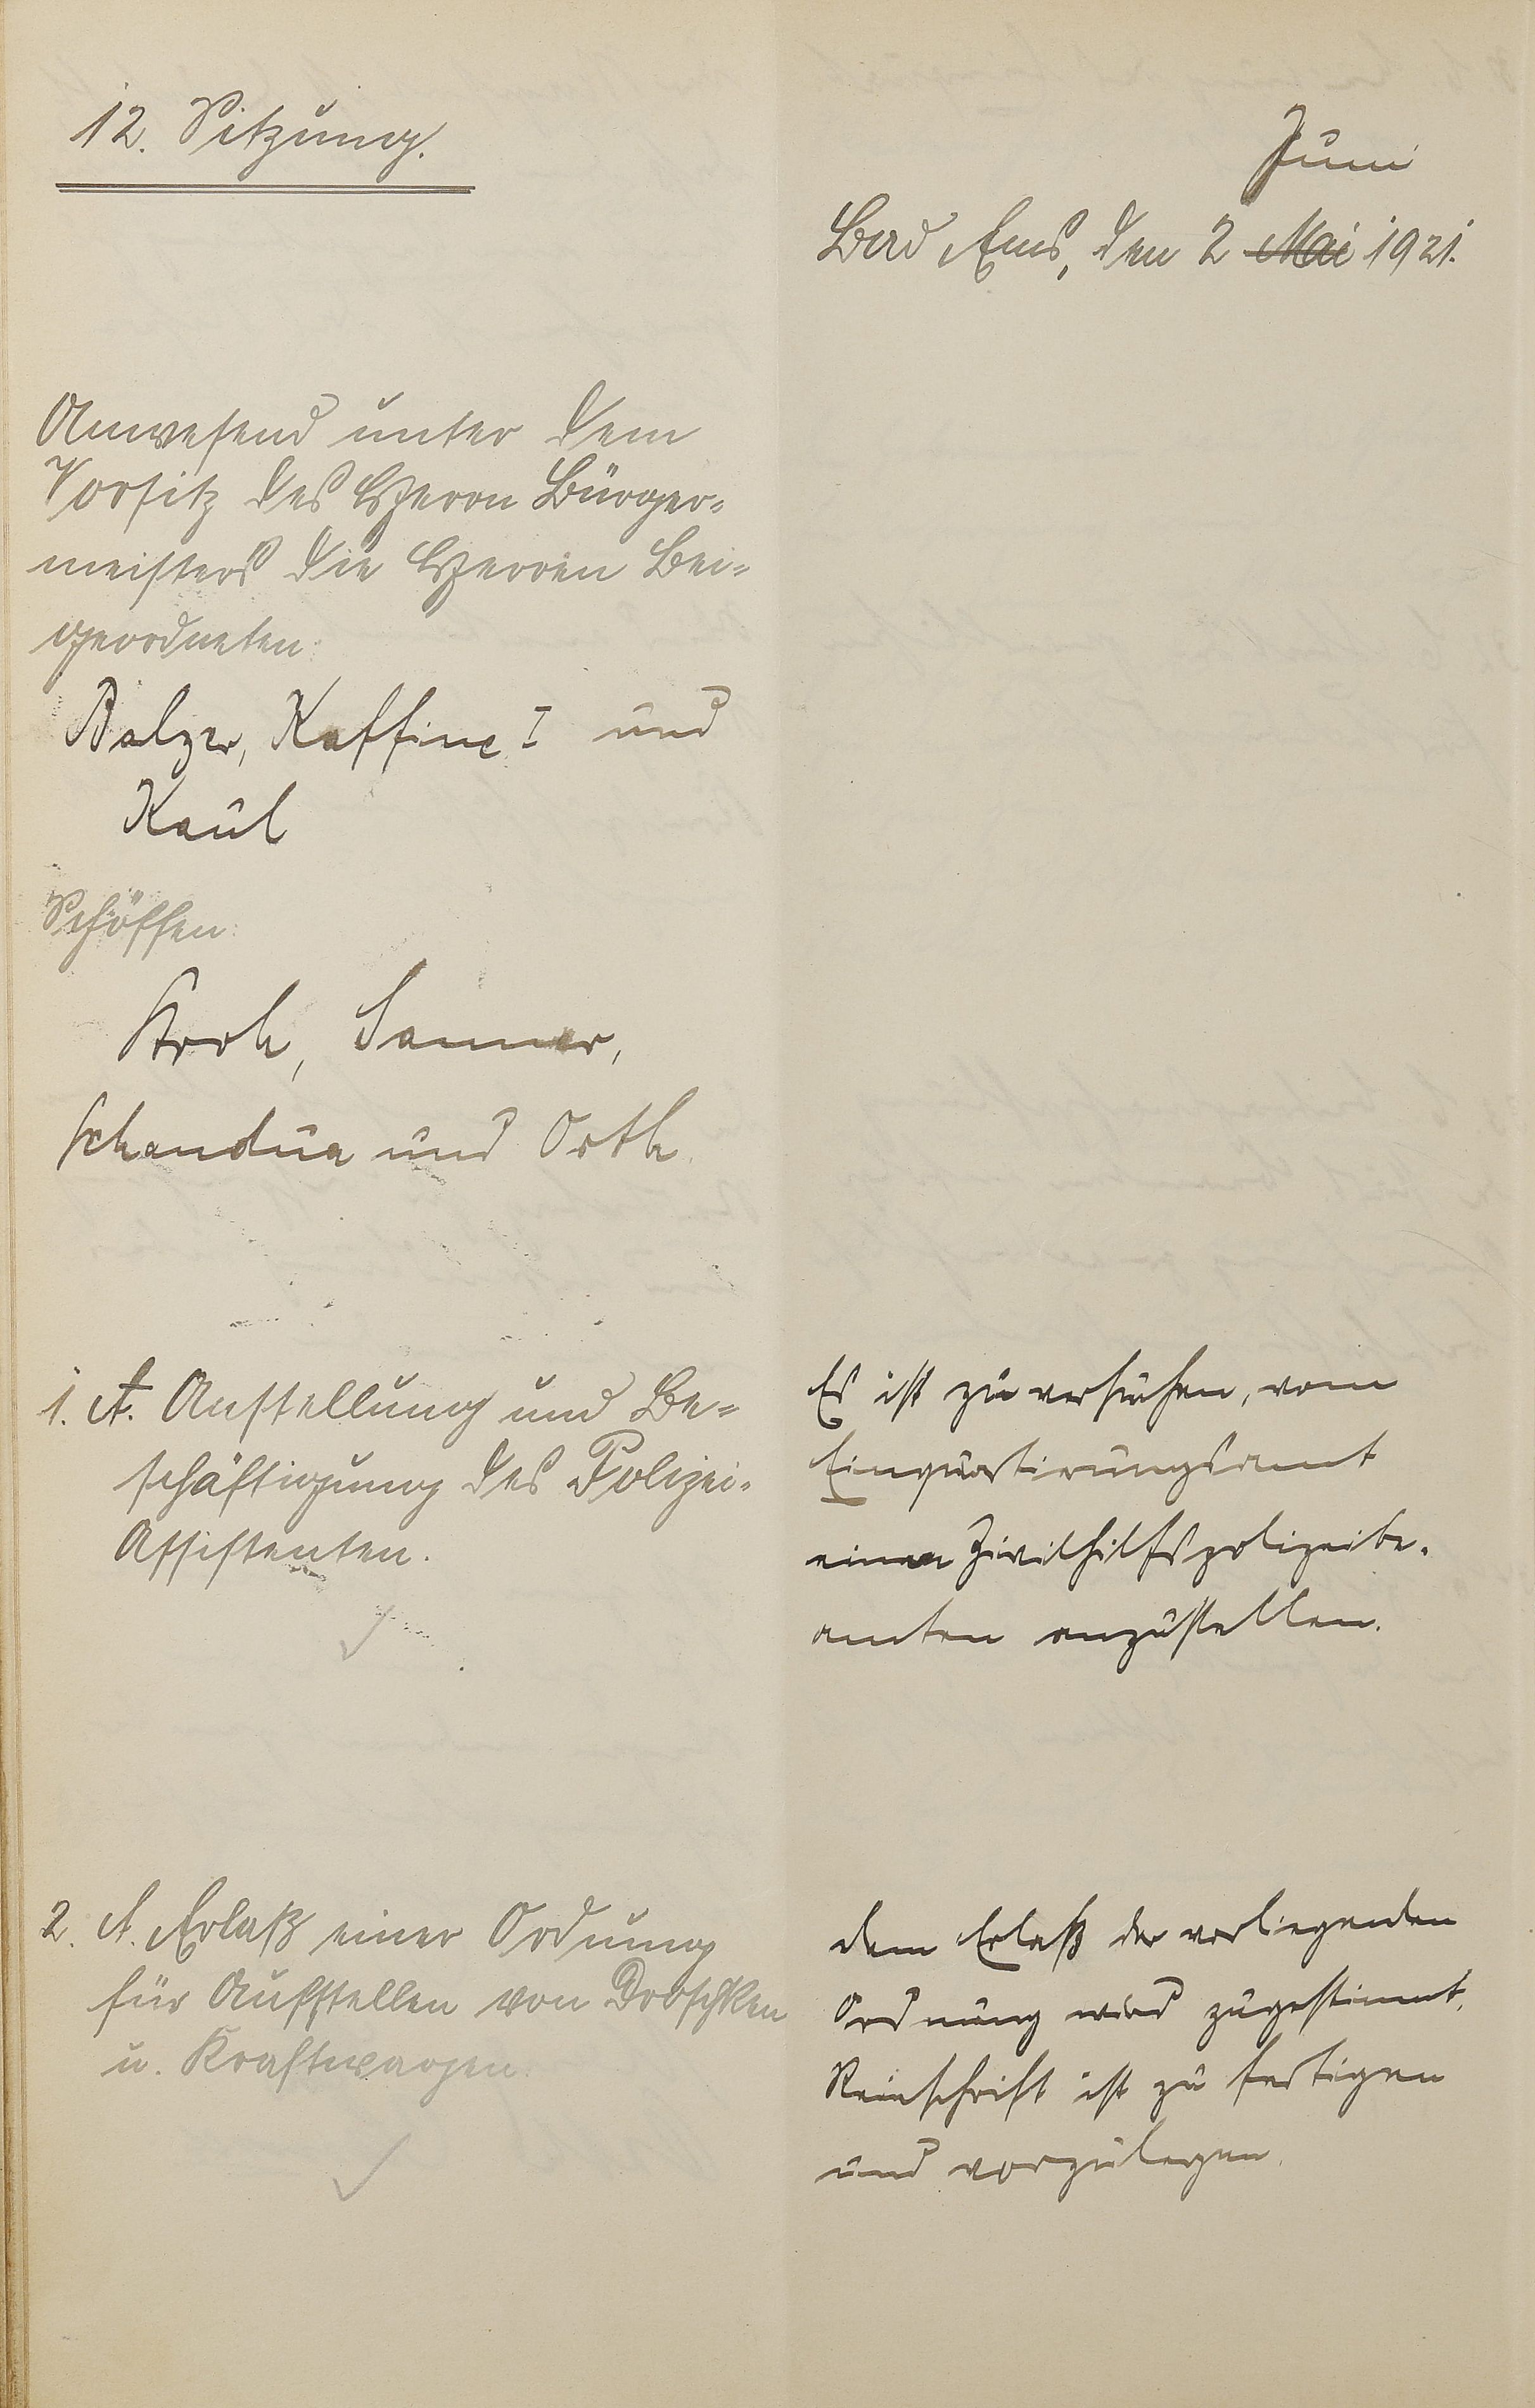 12. Sitzung.
Juni
Bad Ems, den 2 Mai 1921.
Anwesend unter dem
Vorsitz des Herrn Bürger-
meisters die Herren Bei-
geordneten:
Balzer, Kaffine I und
Kaul
Schöffen:
Kroh, Sanner,
Schandua und Orth.
1. A. Anstellung und Be-
schäftigung des Polizei-
Assistenten.
Es ist zu versuchen, vom
Einquartierungsamt
einen Zivilhilfspolizeibe-
amten anzustellen.
2. A. Erlaß einer Ordnung
für Aufstellen von Droschken
u. Kraftwagen.
Dem Erlaß der vorliegenden
Ordnung wird zugestimmt.
Reinschrift ist zu fertigen
und vorzulegen.